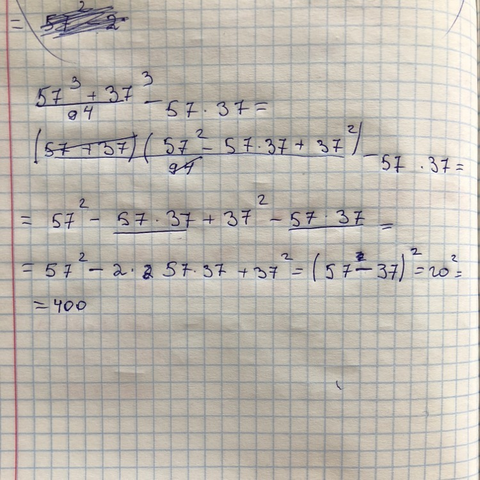 =
57³ + 37³ / 94 - 57 · 37 =
(57 + 37) (57² - 57·37 + 37²) / 94 - 57 · 37 =
= 57² - 57·37 + 37² - 57·37 =
= 57² - 2· 57·37 + 37² = (57 - 37)² = 20² =
= 400